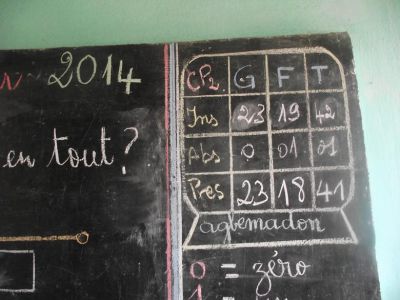 2014
CP2 G F T
Ins 23 19 42
Abs 0 01 01
en tout?
Pres 23 18 41
agbemadon
0 = zéro
1 =